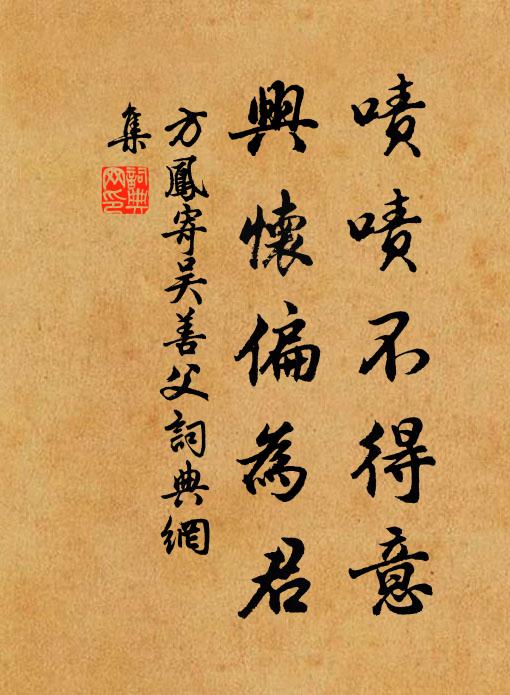 嘖嘖不得意
興懷偏為君
方鳳寄吴善父詞典網
集
詞典網印